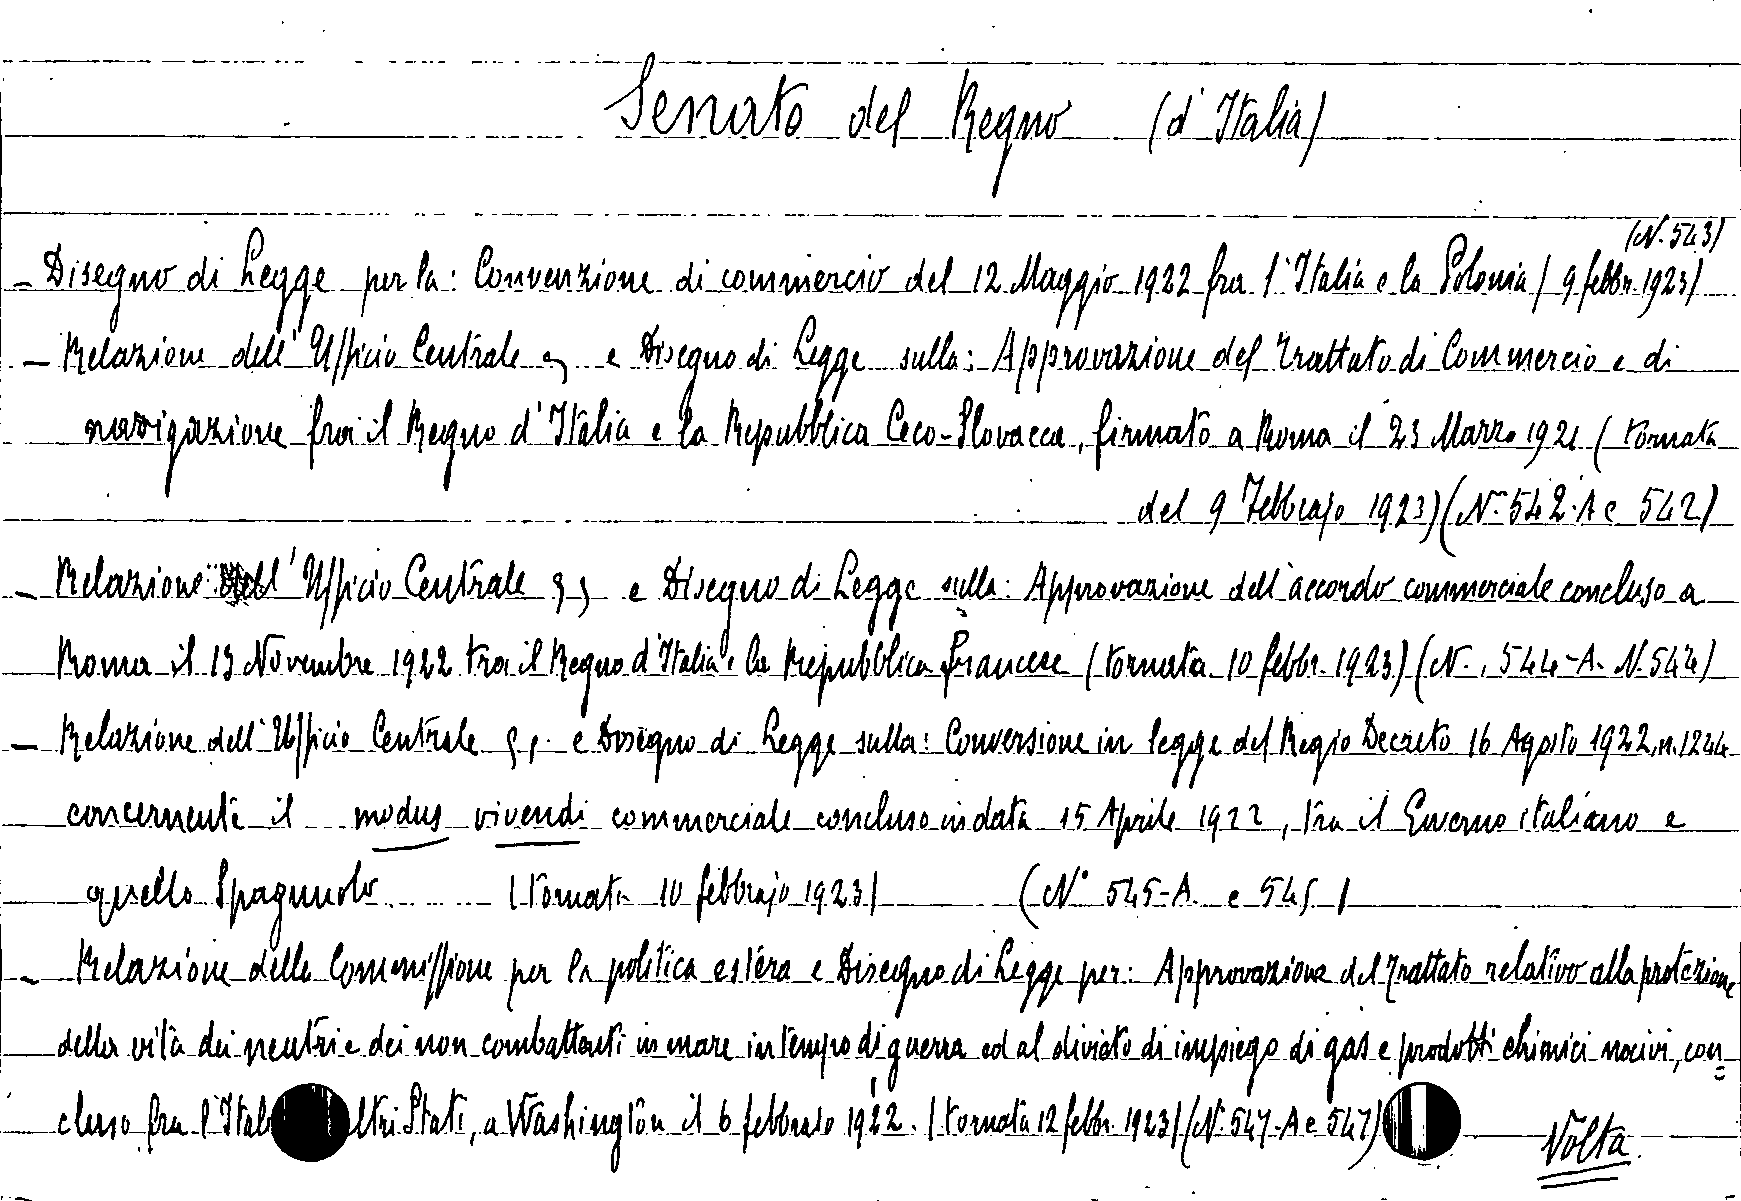 Senato del Regno (d'Italia)
(N. 543)
- Disegno di Legge per la: Convenzione di commercio del 12 Maggio 1922 fra l'Italia e la Polonia (9 febbr. 1923)
- Relazione dell'Ufficio Centrale e Disegno di Legge sulla: Approvazione del Trattato di Commercio e di
navigazione fra il Regno d'Italia e la Repubblica Ceco-Slovacca, firmato a Roma il 23 Marzo 1921 (tornata
del 9 Febbrajo 1923) (N. 542-A e 542)
- Relazione dell'Ufficio Centrale e Disegno di Legge sulla: Approvazione dell'accordo commerciale concluso a
Roma il 13 Novembre 1922 tra il Regno d'Italia e la Repubblica francese (tornata 10 febbr. 1923) (N. 544-A. N. 544)
- Relazione dell'Ufficio Centrale e Disegno di Legge sulla: Conversione in legge del Regio Decreto 16 Agosto 1922, n. 1244
concernente il modus vivendi commerciale concluso in data 15 Aprile 1922, tra il Governo italiano e
quello Spagnuolo (tornata 10 febbrajo 1923) (N° 545-A. e 545)
- Relazione della Commissione per la politica estera e Disegno di Legge per: Approvazione del Trattato relativo alla protezione
della vita dei neutri e dei non combattenti in mare in tempo di guerra ed al divieto di impiego di gas e prodotti chimici nocivi, con=
cluso fra l'Ital ltri Stati, a Washington il 6 febbraio 1922. (tornata 12 febbr. 1923) (N. 547-A e 547)
Volta